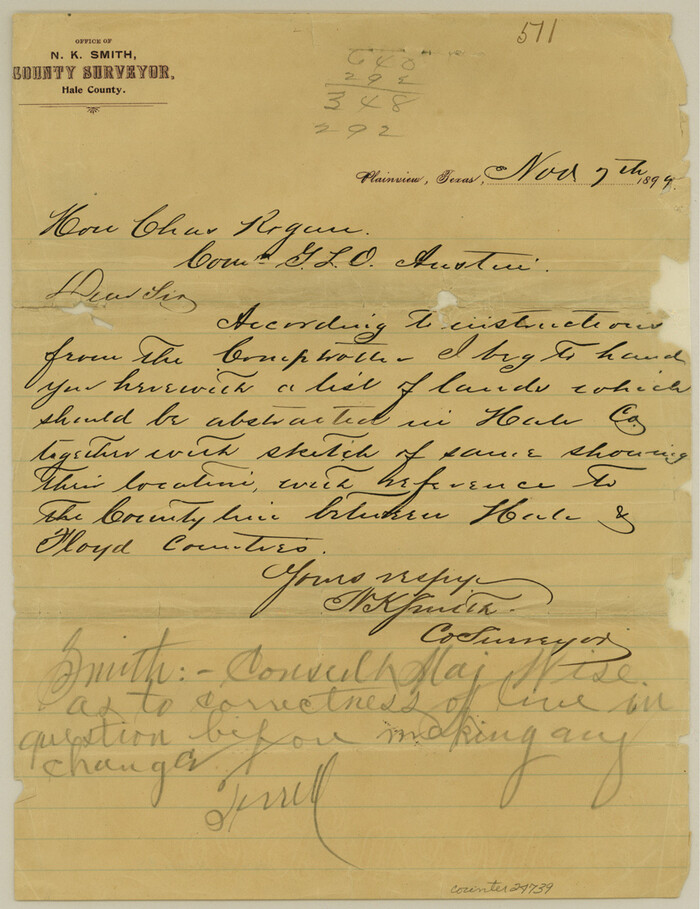 511
OFFICE OF
N. K. SMITH,
COUNTY SURVEYOR,
Hale County.
640
292
348
292
Plainview, Texas, Nov 7th 1899.
Hon Chas Rogan.
Com'r G. L. O. Austin.
Dear Sir
According to instructions
from the Comptroller I beg to hand
you herewith a list of lands which
should be abstracted in Hale Co,
together with sketch of same showing
their location, with reference to
the County line between Hale &
Floyd Counties.
Yours respy
N K Smith.
Co Surveyor
Smith:- Consult Maj Wise
as to correctness of line in
question before making any
change.
Terrell
counter 29739